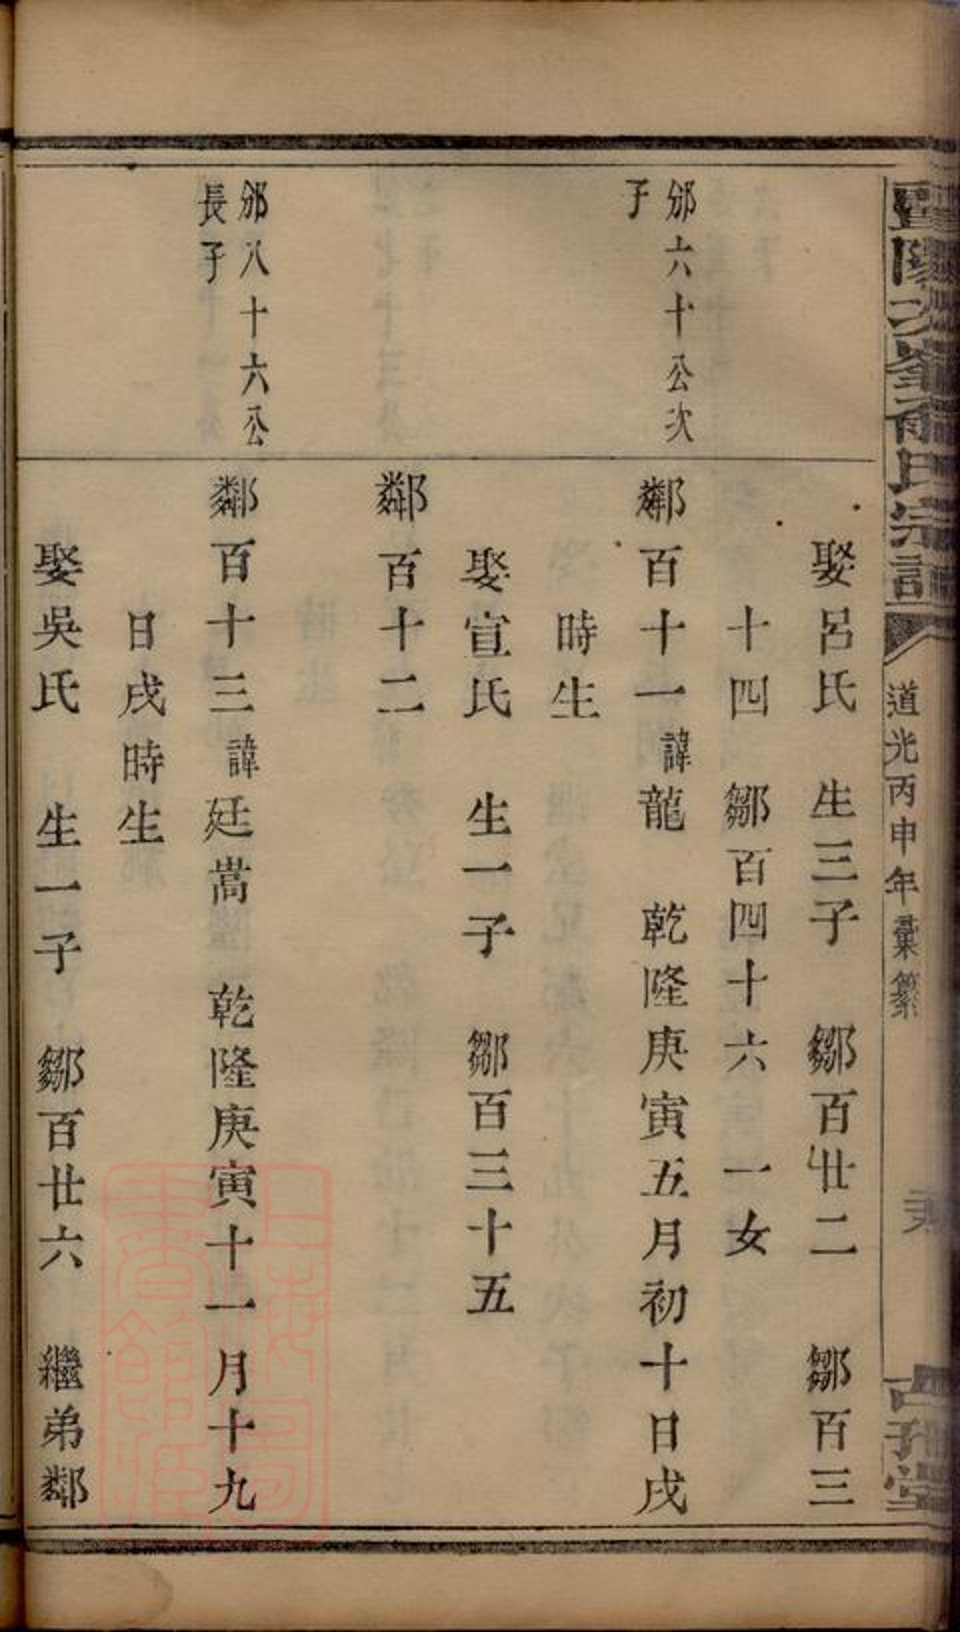 娶呂氏 生三子 鄒百廿二 鄒百三
十四 鄒百四十六 一女
邠六十公次
子
鄰百十一諱龍 乾隆庚寅五月初十日戌
時生
娶宣氏 生一子 鄒百三十五
鄰百十二
邠八十六公
長子
鄰百十三諱廷嵩 乾隆庚寅十一月十九
日戌時生
娶吳氏 生一子 鄒百廿六 繼弟鄰
道光丙申年彙纂
上海圖書館藏